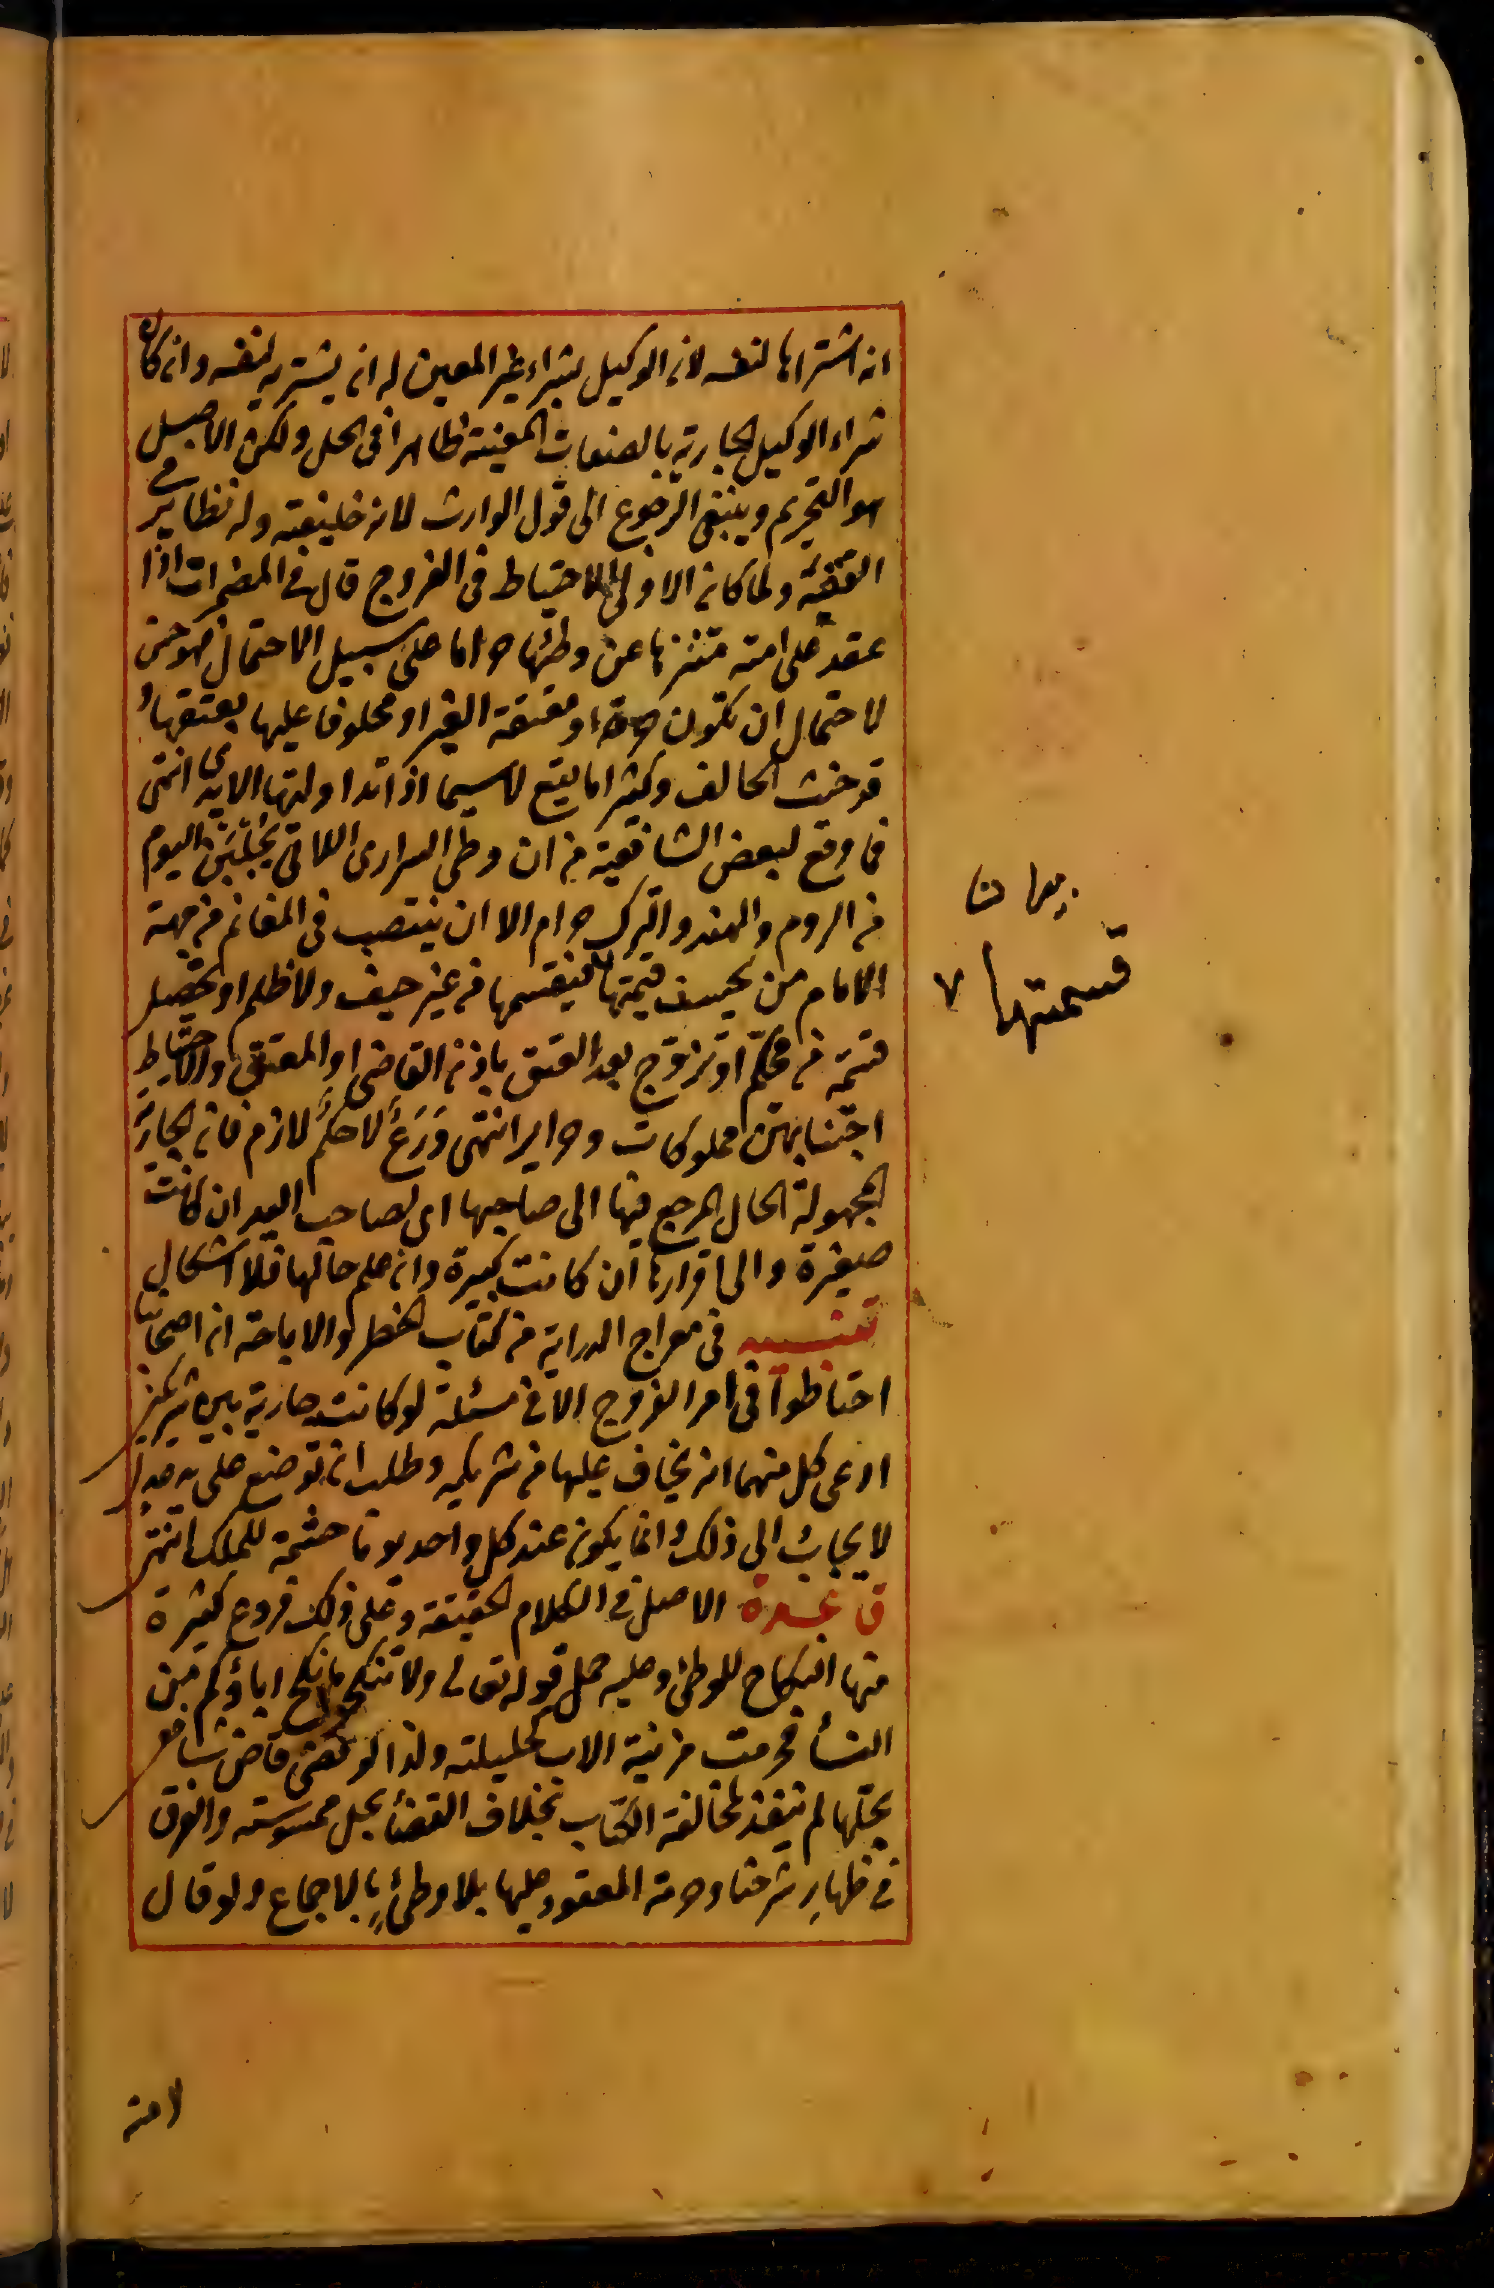 انه اشتراها لنفسه لان الوكيل بشراء غير المعين له ان يشتريه لنفسه وان كان
شراء الوكيل الجارية بالصفات المعينة ظاهرا فى الحل ولكن الاصل
هو التحريم وينبغى الرجوع الى قول الوارث لانه خليفته وله نظاير فى
الفقه ولما كان الاولى الاحتياط فى الفروج قال فى المضمرات اذا
عقد على امته متنزها عن وطئها حراما على سبيل الاحتمال فهو حسن
لاحتمال ان تكون حرة او معتقة الغير او محلوفا عليها بعتقها و
قد حنث الحالف وكثيرا ما يقع لاسيما اذا تداولتها الايدى انتهى
فما وقع لبعض الشافعية من ان وطى السرارى اللاتى يُجْلَبْنَ اليوم
من الروم والهند والترك حرام الا ان ينتصب فى المغانم من جهة
الامام من يحسن قيمتها فيقسمها من غير حيف ولا ظلم او يحصل
قسمة من محكّم او تزوّج بعد العتق باذن القاضى او المعتق والاحتياط
اجتنابهن مملوكات وحراير انتهى وَرَعٌ لا حكمٌ لازم فان الجارية
المجهولة الحال المرجع فيها الى صاحبها اى لصاحب اليد ان كانت
صغيرة والى اقرارها ان كانت كبيرة وان علم حالها فلا اشكال
تنبيه فى معراج الدراية من كتاب الحظر والاباحة ان اصحابنا
احتاطوا فى امر الفروج الا فى مسئلة لو كانت جارية بين شريكين
ادعى كل منهما انه يخاف عليها من شريكه وطلب ان توضع على يد عدل
لا يجاب الى ذلك وانما يكون عند كل واحد يوما حشمة للملك انتهى
قاعدة الاصل فى الكلام الحقيقة وعلى ذلك فروع كثيرة
منها النكاح للوطئ وعليه حمل قوله تعالى ولا تنكحوا ما نكح اباؤكم من
النسأ فحرمت مزنية الاب كحليلته ولذا لو قضى قاض شافعى
بحلها لم ينفذ لمخالفة الكتاب بخلاف القضأ بحل ممسوسته والفرق
فى ظهار شرحنا وحرمة المعقود عليها بلا وطئٍ بالاجماع ولو قال
قسمتها ٧
لامته